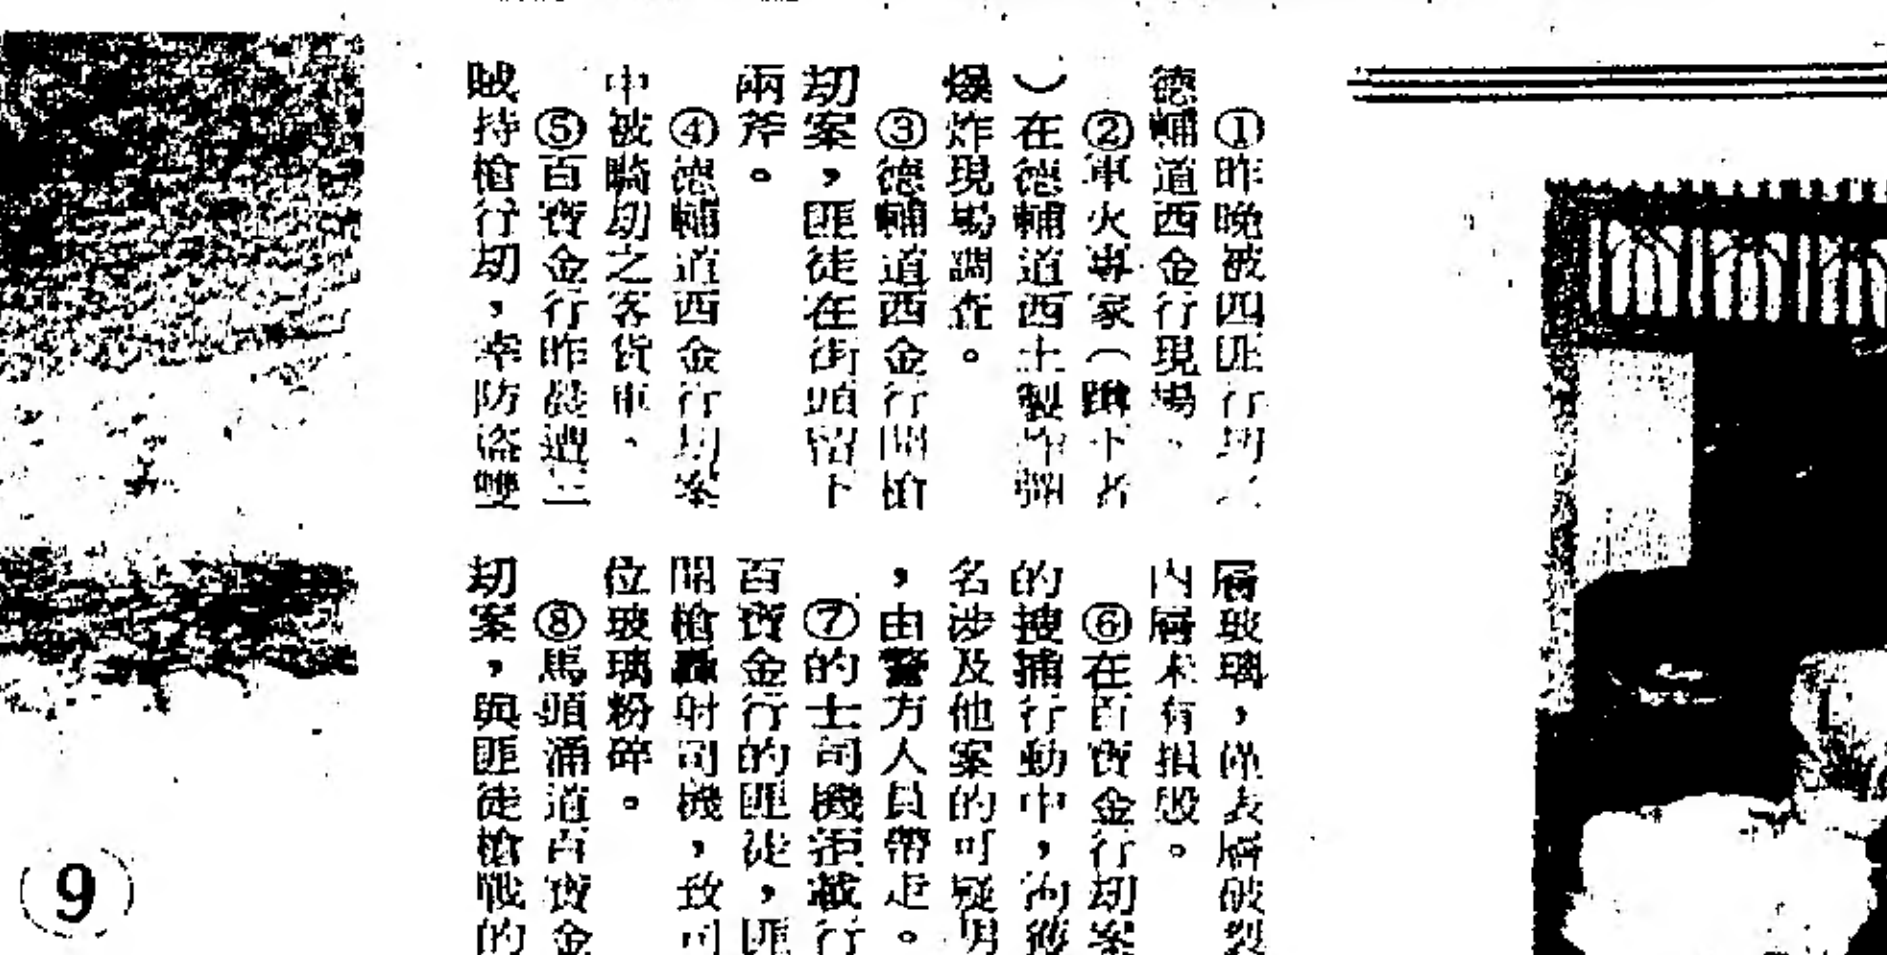 ①昨晚被四匪行劫之
德輔道西金行現場。
②軍火專家（蹲下者
）在德輔道西土製炸彈
爆炸現場調查。
③德輔道西金行開槍
劫案，匪徒在街頭留下
兩斧。
④德輔道西金行劫案
中被騎劫之客貨車。
⑤百寶金行昨晨遭三
賊持槍行劫，幸防盜雙
層玻璃，僅表層破裂
內層未有損毀。
⑥在百寶金行劫案
的搜捕行動中，洵獲
名涉及他案的可疑男
，由警方人員帶走。
⑦的士司機拒載行
百寶金行的匪徒，匪
開槍轟射司機，致司
位玻璃粉碎。
⑧馬頭涌道百寶金
劫案，與匪徒槍戰的
9